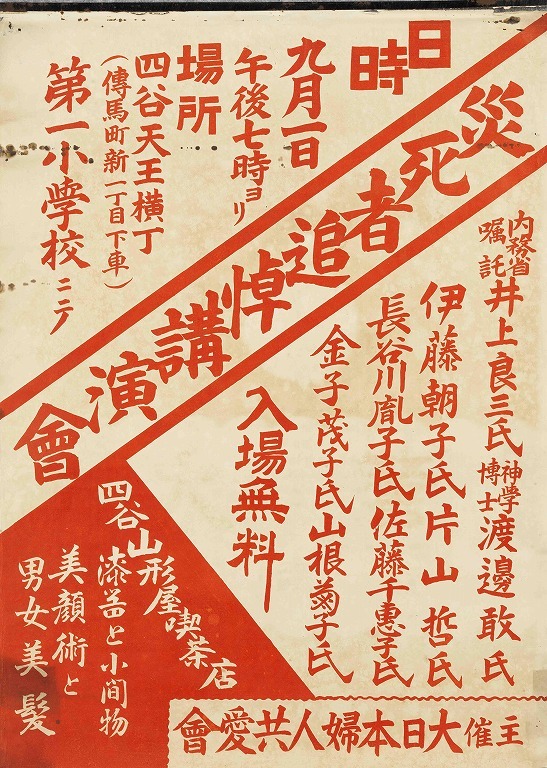 災死者追悼講演會
日時
九月一日
午後七時ヨリ
場所
四谷天王横丁
(傳馬町新一丁目下車)
第一小學校ニテ
内務省嘱託 井上良三氏 神學博士 渡邊敢氏
伊藤朝子氏 片山哲氏
長谷川胤子氏 佐藤千惠子氏
金子茂子氏 山根菊子氏
入場無料
四谷山形屋喫茶店
漆器と小間物
美顔術と
男女美髪
主催 大日本婦人共愛會